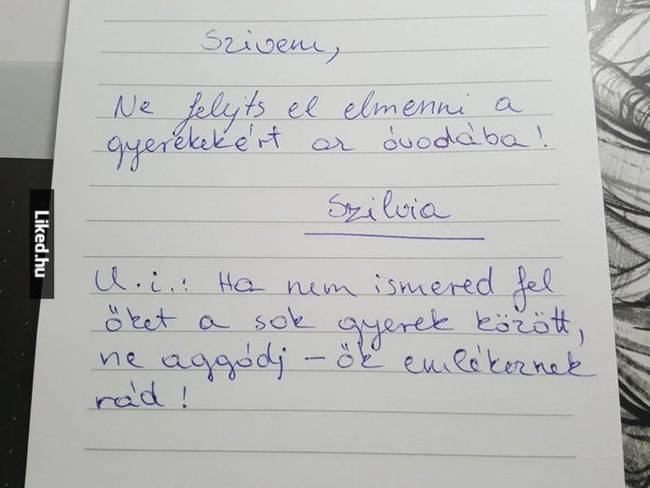 Szivem,
Ne felejts el elmenni a
gyerekekért az óvodába!
Szilvia
U.i.: Ha nem ismered fel
őket a sok gyerek között,
ne aggódj - ők emlékeznek
rád!
Liked.hu